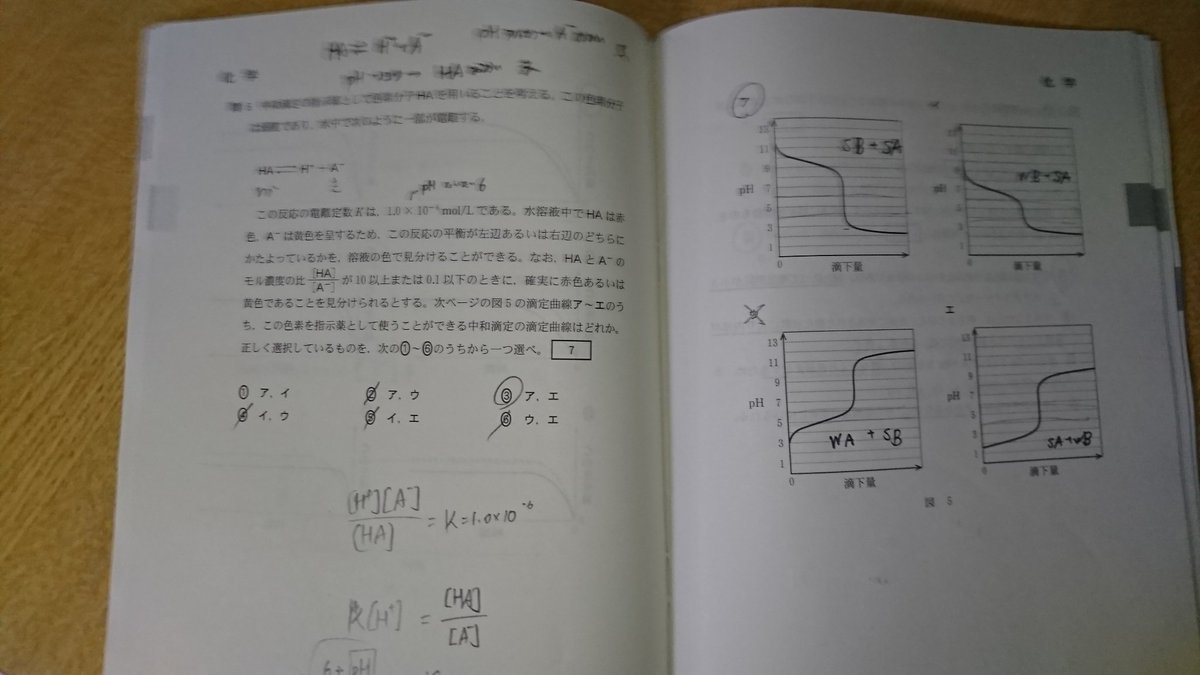 化 学
問5 中和滴定の指示薬として色素分子HAを用いることを考える。この色素分子
は弱酸であり、水中で次のように一部が電離する。
HA ⇌ H⁺ + A⁻
この反応の電離定数Kは、1.0×10⁻⁶mol/Lである。水溶液中でHAは赤
色、A⁻は黄色を呈するため、この反応の平衡が左辺あるいは右辺のどちらに
かたよっているかを、溶液の色で見分けることができる。なお、HAとA⁻の
モル濃度の比[HA]/[A⁻]が10以上または0.1以下のときに、確実に赤色あるいは
黄色であることを見分けられるとする。次ページの図5の滴定曲線ア～エのう
ち、この色素を指示薬として使うことができる中和滴定の滴定曲線はどれか。
正しく選択しているものを、次の①～⑥のうちから一つ選べ。 7
① ア、イ
② ア、ウ
③ ア、エ
④ イ、ウ
⑤ イ、エ
⑥ ウ、エ
[H⁺][A⁻]/[HA] = K=1.0×10⁻⁶
[H⁺] = [HA]/[A⁻]
6+ pH
化 学
ア
13
11
9
7
5
3
1
pH
0
滴下量
SB+SA
イ
13
11
9
7
5
3
1
pH
0
滴下量
WB+SA
ウ
13
11
9
7
5
3
1
pH
0
滴下量
WA + SB
エ
13
11
9
7
5
3
1
pH
0
滴下量
SA+WB
図 5